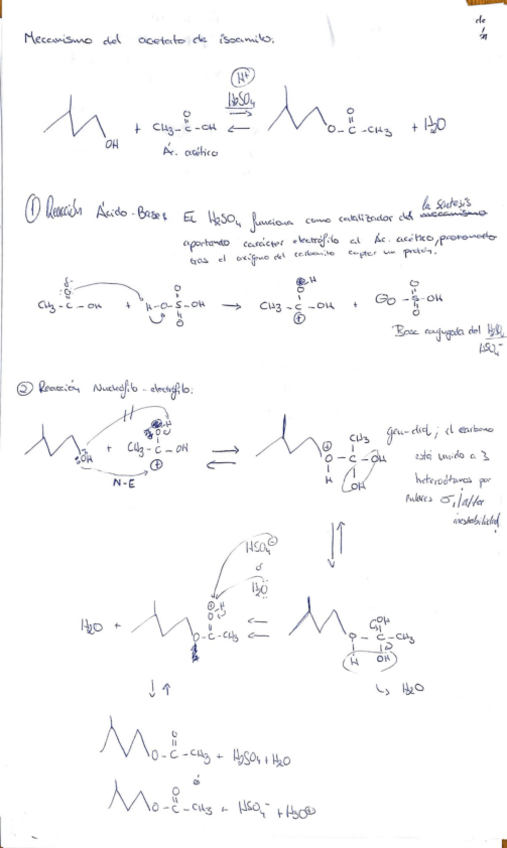 Mecanismo del acetato de isoamilo.
de
H+
H2SO4
OH + CH3-C-OH ⇌ O-C-CH3 + H2O
O
O
Ác. acético
① Reacción Ácido-Base: El H2SO4 funciona como catalizador del mecanismo la síntesis
aportando carácter electrófilo al Ác. acético, protonado
tras el oxígeno del carbonilo captar un protón.
O
O
H
O
O
CH3-C-OH + H-O-S-OH → CH3-C-OH + O-S-OH
O
⊕
O
Base conjugada del H2SO4
HSO4-
② Reacción Nucleófilo-electrófilo:
OH + CH3-C-OH ⇌
⊕
N-E
CH3
O-C-OH
H
OH
gem-diol; el carbono
está unido a 3
heteroátomos por
enlaces σ,
inestabilidad
HSO4⊖
ó
H2O
H2O + O-C-CH3 ⇌ O-C-CH3
OH
H
OH
↳ H2O
O
O-C-CH3 + H2SO4 + H2O
ó
O
O-C-CH3 + HSO4- + H3O⊕